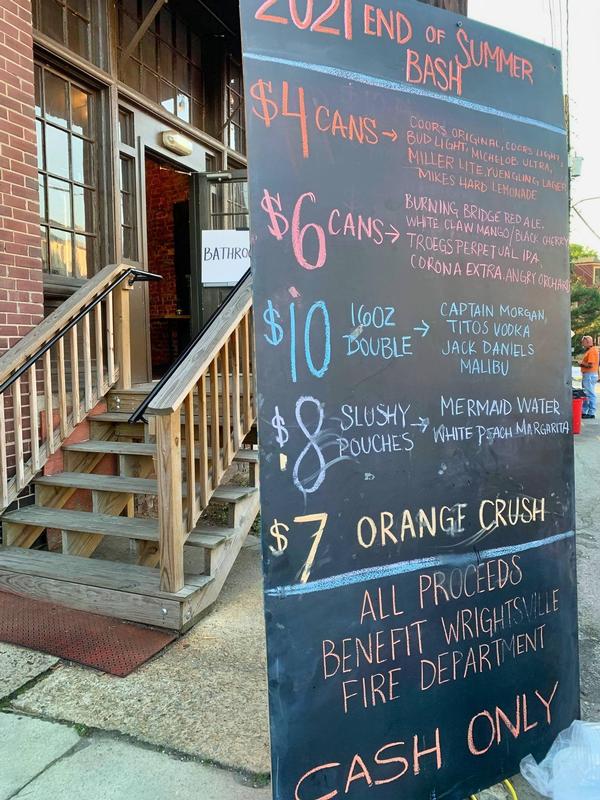 2021 END OF SUMMER
BASH
$4 CANS → COORS ORIGINAL, COORS LIGHT,
BUD LIGHT, MICHELOB ULTRA,
MILLER LITE, YUENGLING LAGER
MIKES HARD LEMONADE
$6 CANS → BURNING BRIDGE RED ALE.
WHITE CLAW MANGO/BLACK CHERRY
TROEGS PERPETUAL IPA,
CORONA EXTRA, ANGRY ORCHARD
$10 16OZ DOUBLE → CAPTAIN MORGAN,
TITOS VODKA
JACK DANIELS
MALIBU
$8 SLUSHY POUCHES → MERMAID WATER
WHITE PEACH MARGARITA
$7 ORANGE CRUSH
ALL PROCEEDS
BENEFIT WRIGHTSVILLE
FIRE DEPARTMENT
CASH ONLY
BATHRO